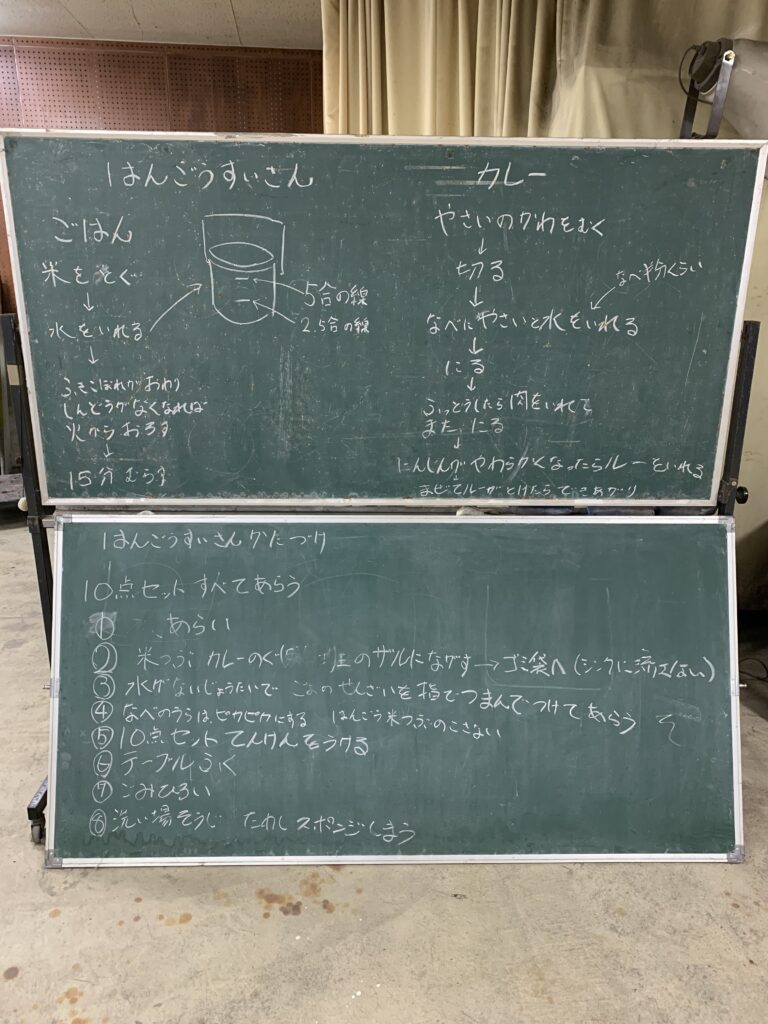 はんごうすいさん
ごはん
米をとぐ
↓
水をいれる
↓
ふきこぼれがおわり
しんどうがなくなれば
火からおろす
↓
15分むらす
5合の線
2.5合の線
カレー
やさいのかわをむく
↓
切る
↓
なべ半分くらい
なべにやさいと水をいれる
↓
にる
↓
ふっとうしたら肉をいれて
また にる
↓
にんじんがやわらかくなったらルーをいれる
↓
まぜてルーがとけたらできあがり
はんごうすいさんかたづけ
10点セットすべてあらう
① あらい
② 米つぶ カレーのぐは 班のザルにながす→ゴミ袋へ(シンクに流さない)
③ 水がないじょうたいで こなのせんざいを指でつまんでつけてあらう
④ なべのうらはピカピカにする はんごう米つぶのこさない
⑤ 10点セットてんけんをうける
⑥ テーブルふく
⑦ ごみひろい
⑧ 洗い場そうじ たわしスポンジしまう